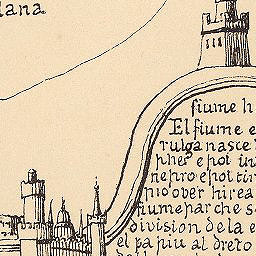 lana
fiume h
El fiume e
rulga nasce
pher e pot in
nepro e pot tir
pio over hirea
fiume par che s
division de la e
el pa piu al dreto